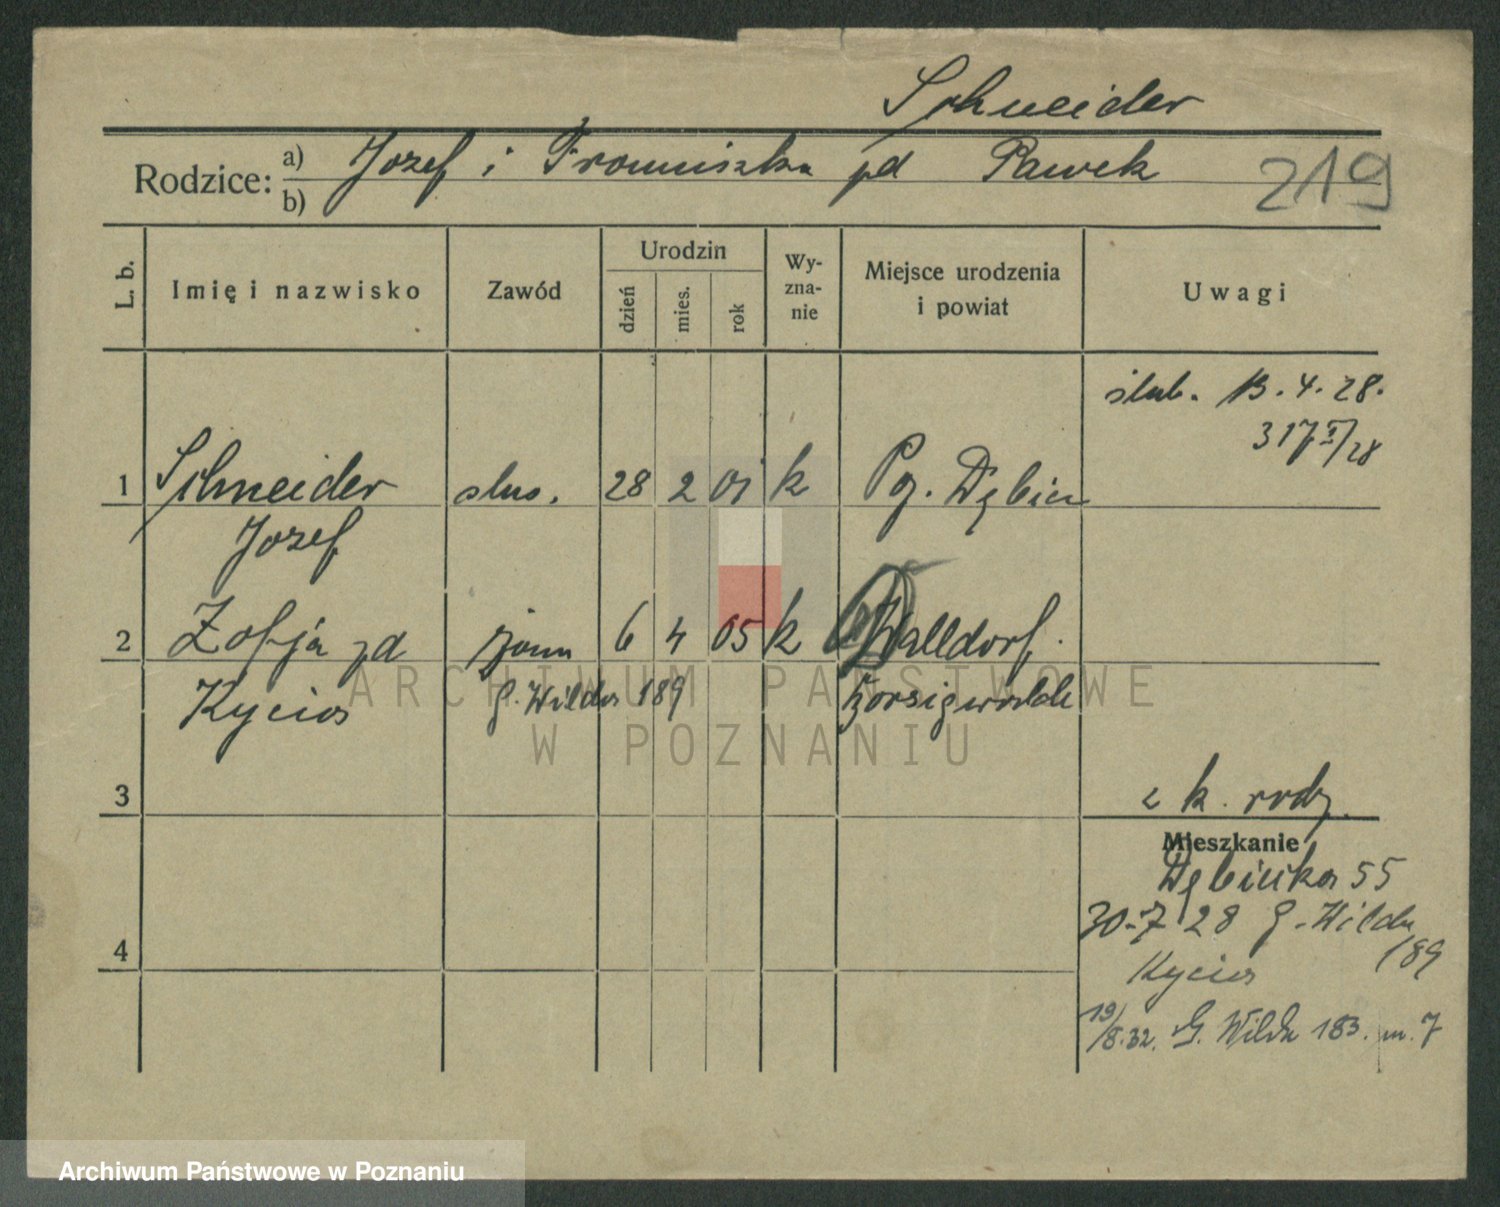 Schneider
Rodzice: a) Jozef i Franciszka zd Pawek
b)
219
L. b.
Imię i nazwisko
Zawód
Urodzin
dzień
mies.
rok
Wy-
zna-
nie
Miejsce urodzenia
i powiat
Uwagi
ślub. 13.4.28.
317 /28
1 Schneider ślus. 28 2 01 k Pg. Dębiec
Jozef
2 Zofja zd żona 6 4 05 k Walldorf
Kycios G. Wilda 189 Borsigwalde
3
z k. rodz.
Mieszkanie
Dębińska 55
30-7 28 G. Wilda
189
4
Kycios
19/8.32. G. Wilda 183. m. 7
ARCHIWUM PAŃSTWOWE
W POZNANIU
Archiwum Państwowe w Poznaniu